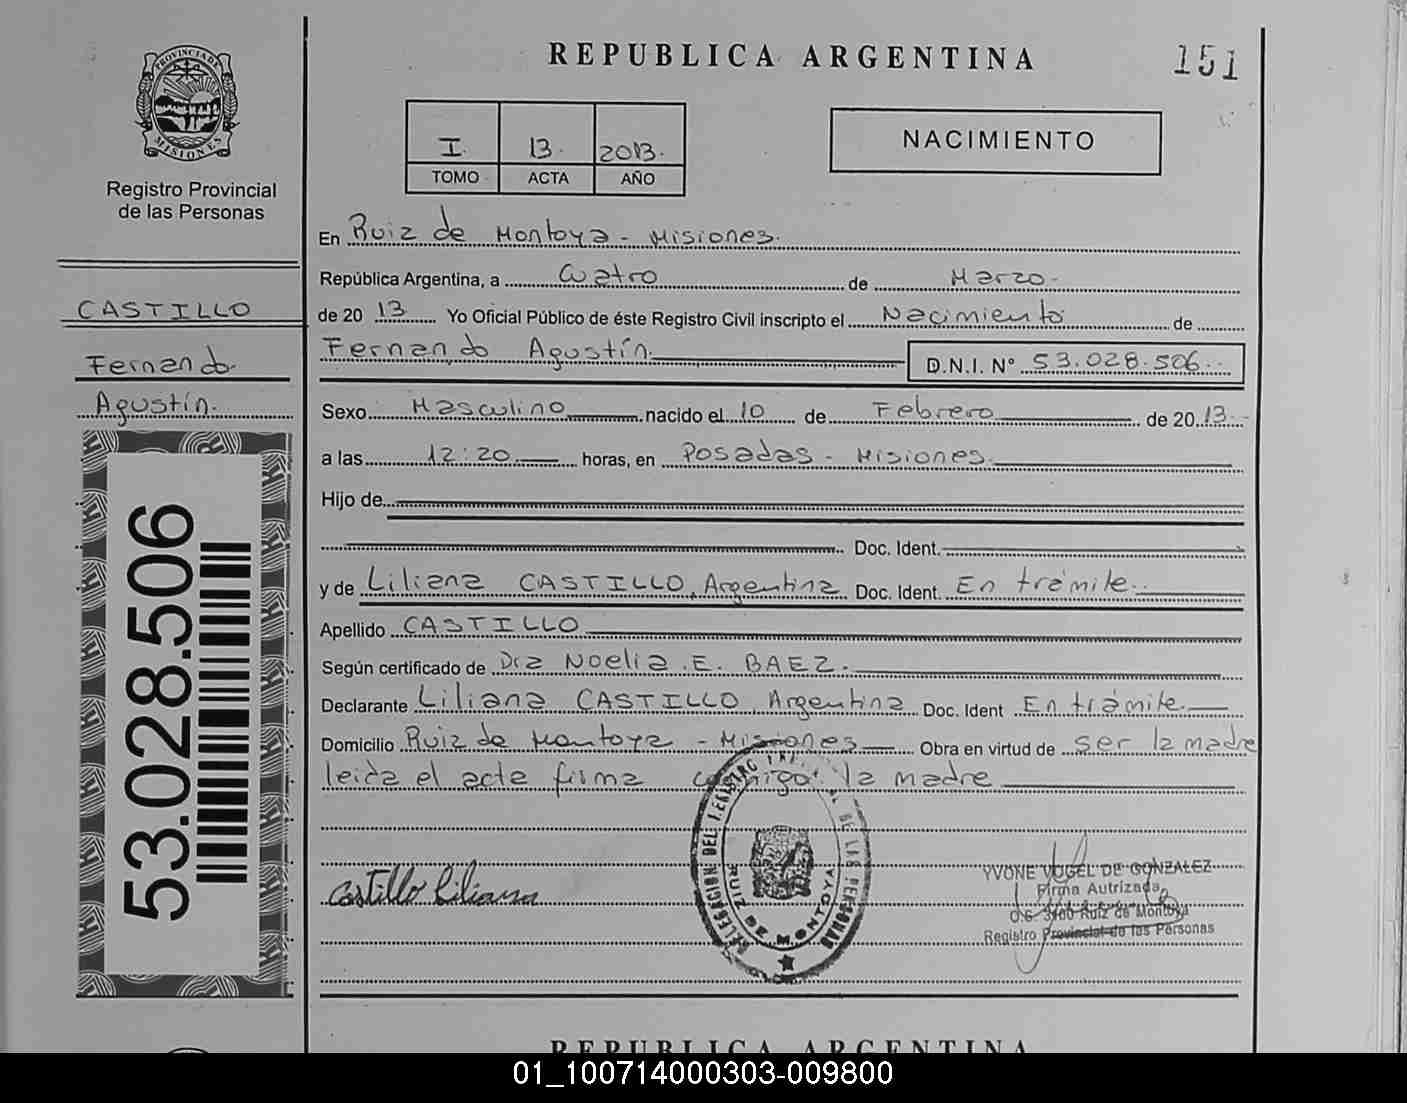 REPUBLICA ARGENTINA
151
PROVINCIA DE
MISIONES
Registro Provincial
de las Personas
I. 13. 2013.
TOMO ACTA AÑO
NACIMIENTO
En Ruiz de Montoya - Misiones.
República Argentina, a Cuatro de Marzo.
CASTILLO
de 20 13 Yo Oficial Público de éste Registro Civil inscripto el Nacimiento de
Fernando Agustín.
D.N.I. Nº 53.028.506
Fernando
Agustín.
Sexo Masculino nacido el 10 de Febrero de 20 13.
a las 12:20 horas, en Posadas - Misiones.
Hijo de
Doc. Ident.
y de Liliana CASTILLO, Argentina Doc. Ident. En trámite.
Apellido CASTILLO
Según certificado de Dra Noelia .E. BAEZ.
Declarante Liliana CASTILLO, Argentina Doc. Ident En trámite.
Domicilio Ruiz de Montoya - Misiones Obra en virtud de ser la madre
leida el acta firma conmigo la madre
53.028.506
Castillo Liliana
DELEGACION DEL REGISTRO DE LAS PERSONAS
RUIZ DE MONTOYA
YVONE VOGEL DE GONZALEZ
Firma Autrizada
Ruiz de Montoya
Registro Provincial de las Personas
REPUBLICA ARGENTINA
01_100714000303-009800